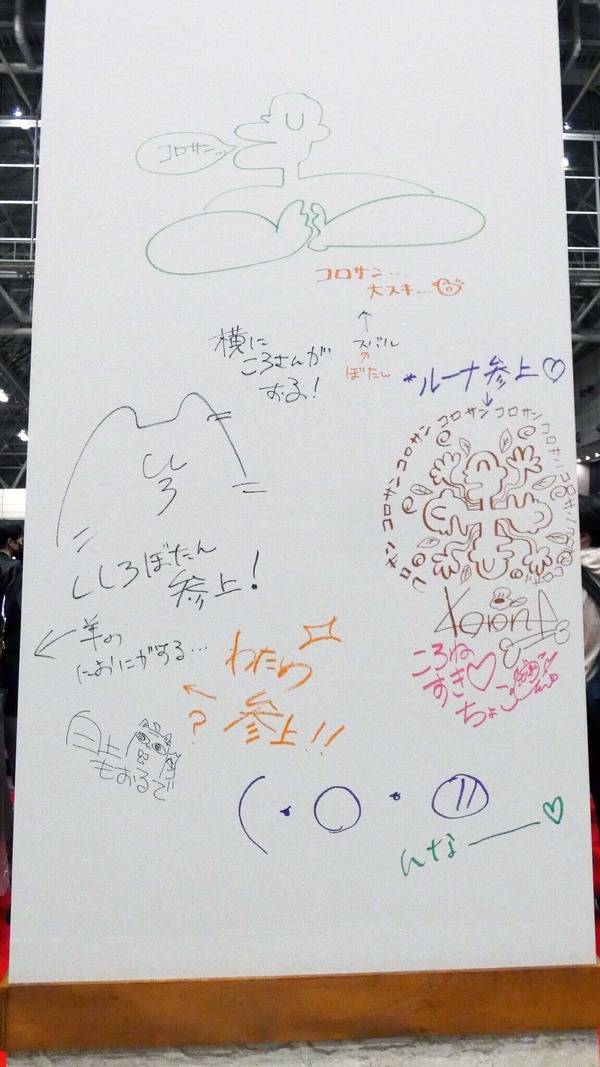 コロサン…
コロサン…
大スキ…
↑
スバル
↑
ぼたん
横に
ころさんが
おる!
*ルーナ参上♡
↓
コロサン コロサン コロサン コロサン コロサン コロサン コロサン
しし
ろ
ししろぼたん
参上!
Korone
ころね
すき♡
ちょこ
← 羊の
においがする…
わため
参上!!
?
もおるで
んなー♡